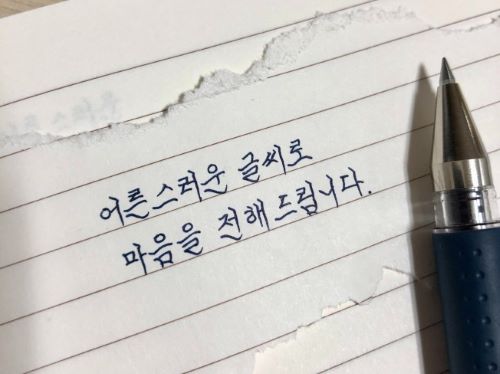 어른스러운 글씨로
마음을 전해드립니다.